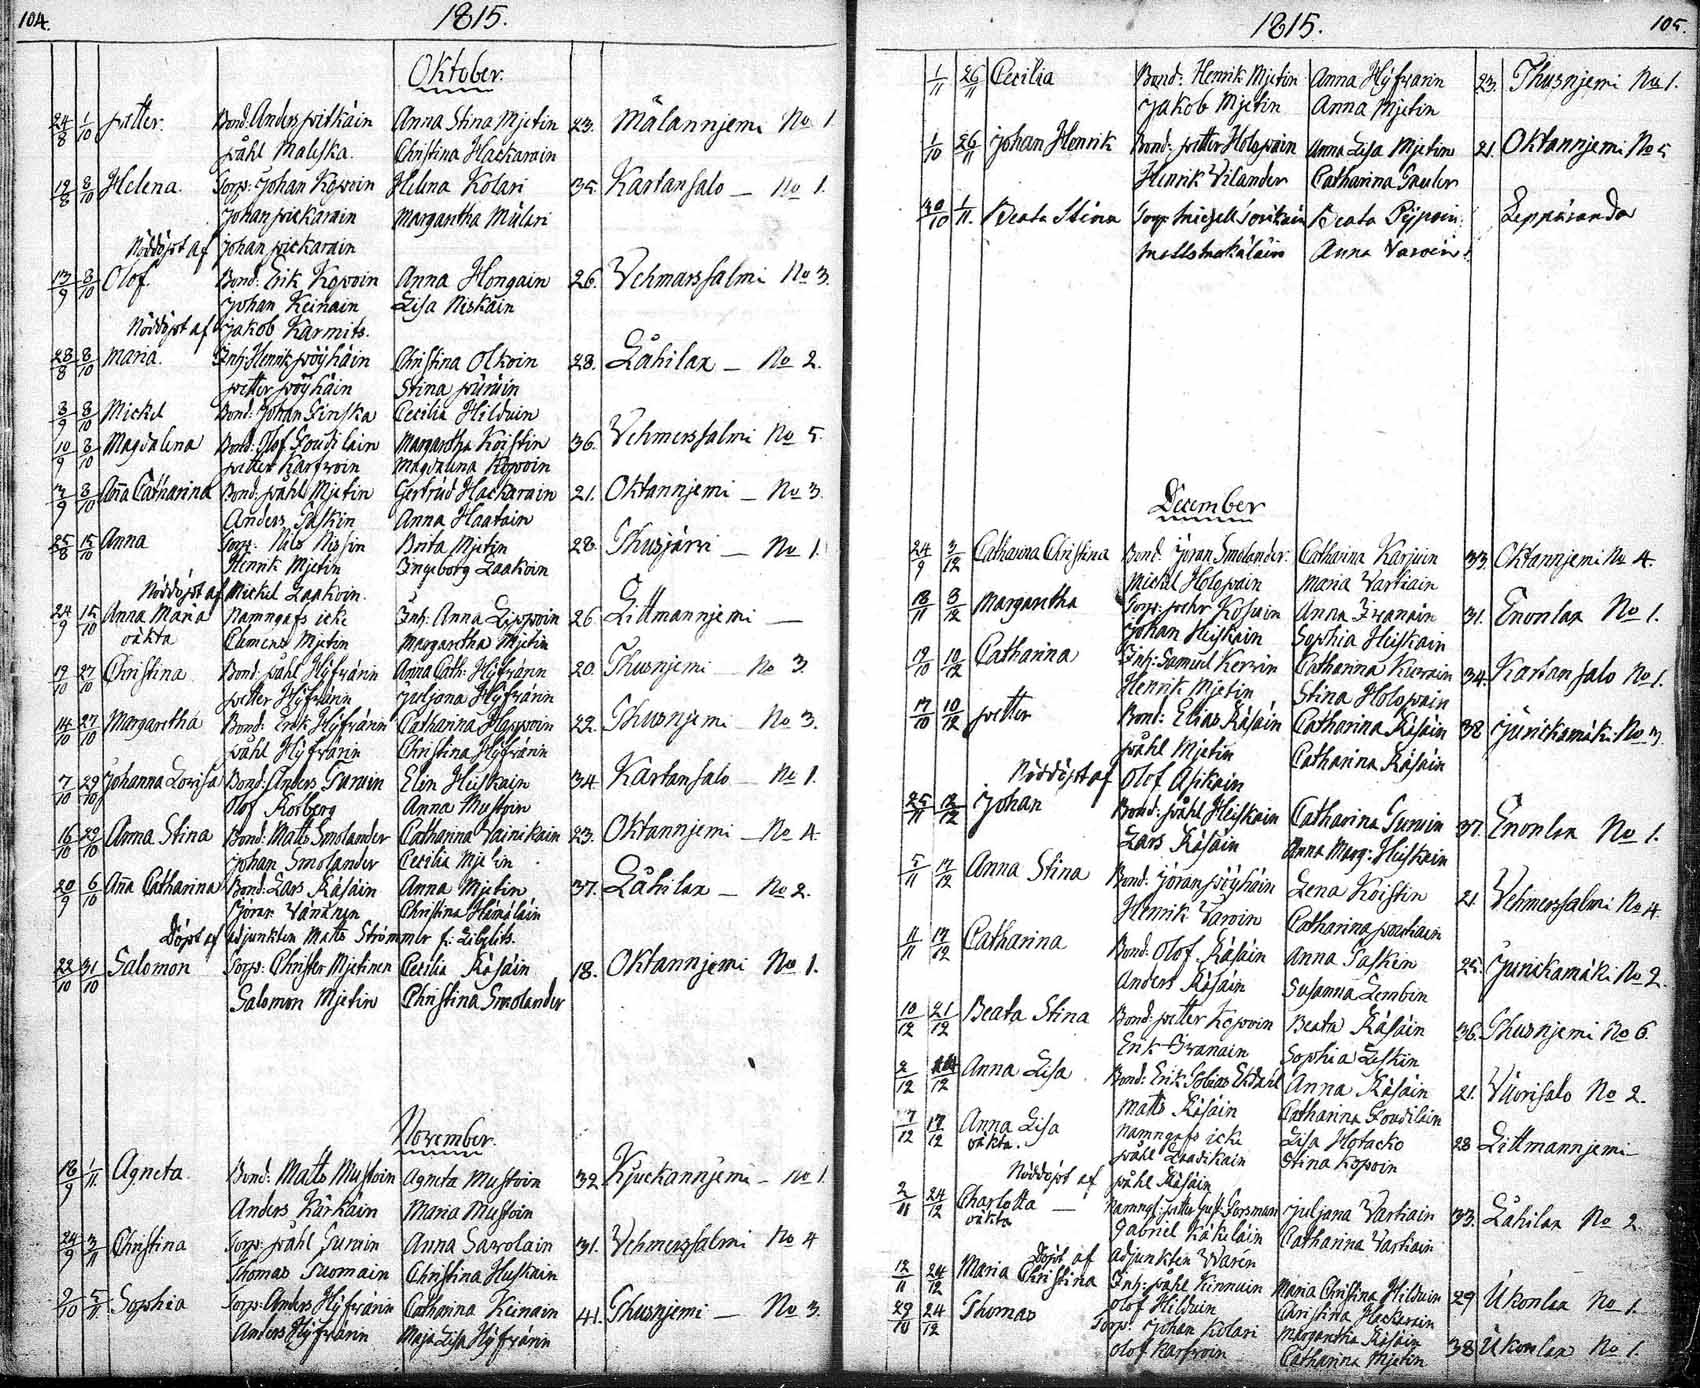 104. 1815.
Oktober.
24/8 1/10 petter. Bond: Anders pitkäin Anna Stina Mjetin 23. Mälannjemi No 1
påhl Malska. Christina Hackarain
19/8 8/10 Helena. Torp: Johan Kopoin Helena Kolari 35. Kartansalo — No 1.
Johan Margaretha Mäleri
Nöddöpt af Johan
13/9 8/10 Olof. Bond: Erik Kopoin Anna Hongain 26. Vehmarssalmi No 3.
Johan Keinain Lisa Niskäin
Nöddöpt af Jakob Karmits.
28/8 8/10 Maria. Inh: Henrik pöyhäin Christina Olkoin 28. Låhilax — No 2.
petter pöyhäin Stina
3/9 8/10 Mickel Bond: Johan Cecilia Hilduin
10/9 8/10 Magdalena Bond: Olof Loudilain Margaretha Koistin 36. Vehmerssalmi No 5.
petter Karhoin Magdalena Kopoin
13/9 8/10 Aña Catharina Bond: påhl Mjetin Gertrud Hackarain 21. Oktannjemi — No 3.
Anders Taskin Anna Haatain
25/8 15/10 Anna Torp: Nils Nissin Brita Mjetin 28. Thusjärvi — No 1.
Henrik Mjetin Ingeborg Laakoin
Nöddöpt af Mickel Laakoin.
24/9 15/10 Anna Maria Namngafs icke Inh: Anna Lippoin 26. Littmannjemi —
oäkta Clemens Mjetin Margaretha Mjetin
19/10 27/10 Christina Bond: påhl Hyfvärin Anna Cath: Hyfvärin 20. Thusnjemi — No 3.
petter Hyfvärin Juljana Hyfvärin
14/10 27/10 Margaretha Bond: Erik Hyfvärin Catharina Happoin 22. Thusnjemi — No 3.
påhl Hyfvärin Christina Hyfvärin
7/10 29/10 Johanna Lovisa Bond: Anders Turuin Elin Heiskain 34. Kartansalo — No 1.
Olof Korberg Anna Mustoin
16/10 22/10 Anna Stina Bond: Matts Smolander Catharina Vainikain 23. Oktannjemi — No 4.
Johan Smolander Cecilia Mjetin
20/9 6/10 Aña Catharina Bond: Lars Räsäin Anna Mjetin 37. Låhilax — No 2.
Jöran Vänänen Christina Hämäläin
Döpt af adjunkten Matts Strömmer fr: Libelits.
22/10 31/10 Salomon Torp: Christer Mjetinen Cecilia Räsäin 18. Oktannjemi No 1.
Salomon Mjetin Christina Smolander
November.
18/9 1/11 Agneta. Bond: Matts Mustoin Agneta Mustoin 32. Kjuckannjemi — No 1.
Anders Kärkäin Maria Mustoin
24/9 3/11 Christina Torp: påhl Turuin Anna Savolain 31. Vehmerssalmi No 4
Thomas Tuomain Christina Huskain
2/10 5/11 Sophia Torp: Anders Hyfvärin Catharina Keinain 41. Thusnjemi — No 3.
Anders Hyfvärin Maja Lisa Hyfvärin
1815. 105.
1/11 26/11 Cecilia Bond: Henrik Mjetin Anna Hyfvärin 23. Thusnjemi No 1.
Jakob Mjetin Anna Mjetin
1/10 26/11 Johan Henrik Bond: petter Holopain Anna Lisa Mjetin 21. Oktannjemi No 5
Henrik Vilander Catharina Gauler
30/10 1/11. Beata Stina Torp: Beata Leppäranda
Anna
December
24/9 3/12 Catharina Christina Bond: Jöran Smolander. Catharina Karjuin 33. Oktannjemi No 4.
Mickel Holopain Maria Vartiain
18/11 3/12 Margaretha Torp: Anna Ivanain 31. Enonlax No 1.
Johan Heiskain Sophia Heiskain
19/10 10/12 Catharina Inh: Samuel Kervin Catharina 34. Kartansalo No 1.
Henrik Mjetin Stina Holopain
17/10 10/12 petter Bond: Elias Räsäin Catharina Räsäin 38 Junikamäki No 3
påhl Mjetin Catharina Räsäin
Nöddöpt af Olof Asikain
25/11 12/12 Johan Bond: påhl Heiskain Catharina Turuin 37. Enonlax No 1.
Lars Räsäin Anna Marg: Heiskain
5/11 17/12 Anna Stina Bond: Jöran pöyhäin Lena Koistin 21. Vehmerssalmi No 4.
Henrik Varoin Catharina
11/11 17/12 Catharina Bond: Olof Räsäin Anna Tasken 25. Junikamäki No 2.
Anders Räsäin Susanna Lembin
10/12 21/12 Beata Stina Bond: petter Kopoin Beata Räsäin 36. Thusnjemi No 6.
Erik Ivanain Sophia Leskin
2/12 12 Anna Lisa Bond: Erik Tobias Ekdahl Anna Räsäin 21. Vuorisalo No 2.
Matts Räsäin Catharina Loudilain
7/12 17/12 Anna Lisa Namngafs icke Lisa Hotacko 28 Littmannjemi —
oäkta. påhl Laadikain Stina Kopoin
Nöddöpt af påhl Räsäin
2/11 24/12 Charlotta — Namngf: petter Gust: Forsman Juljana Vartiain 33. Låhilax No 2.
oäkta Gabriel Käkeläin Catharina Vartiain
Döpt af adjunkten Warén
12/11 24/12 Maria Christina Inh: påhl Kinnuin Maria Christina Hilduin 29 Ukonlax No 1.
Olof Hilduin Christina Hackarain
29/10 24/12 Thomas Torp: Johan Kolari Margaretha Räsäin 38 Ukonlax No 1.
Olof Karhoin Catharina Mjetin